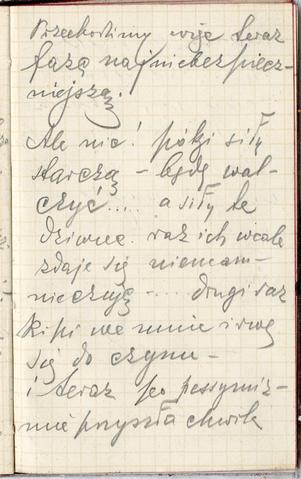 Przechodzimy więc teraz
fazę najniebezpiecz-
niejszą.
Ale nic! póki siły
starczą – będę wal-
czyć.... a siły te
dziwne. raz ich wcale
zdaje się niemam –
nie czuję – ... drugi raz
kipi we mnie i rwę
się do czynu –
i teraz po pessymiz-
mie przyszła chwila